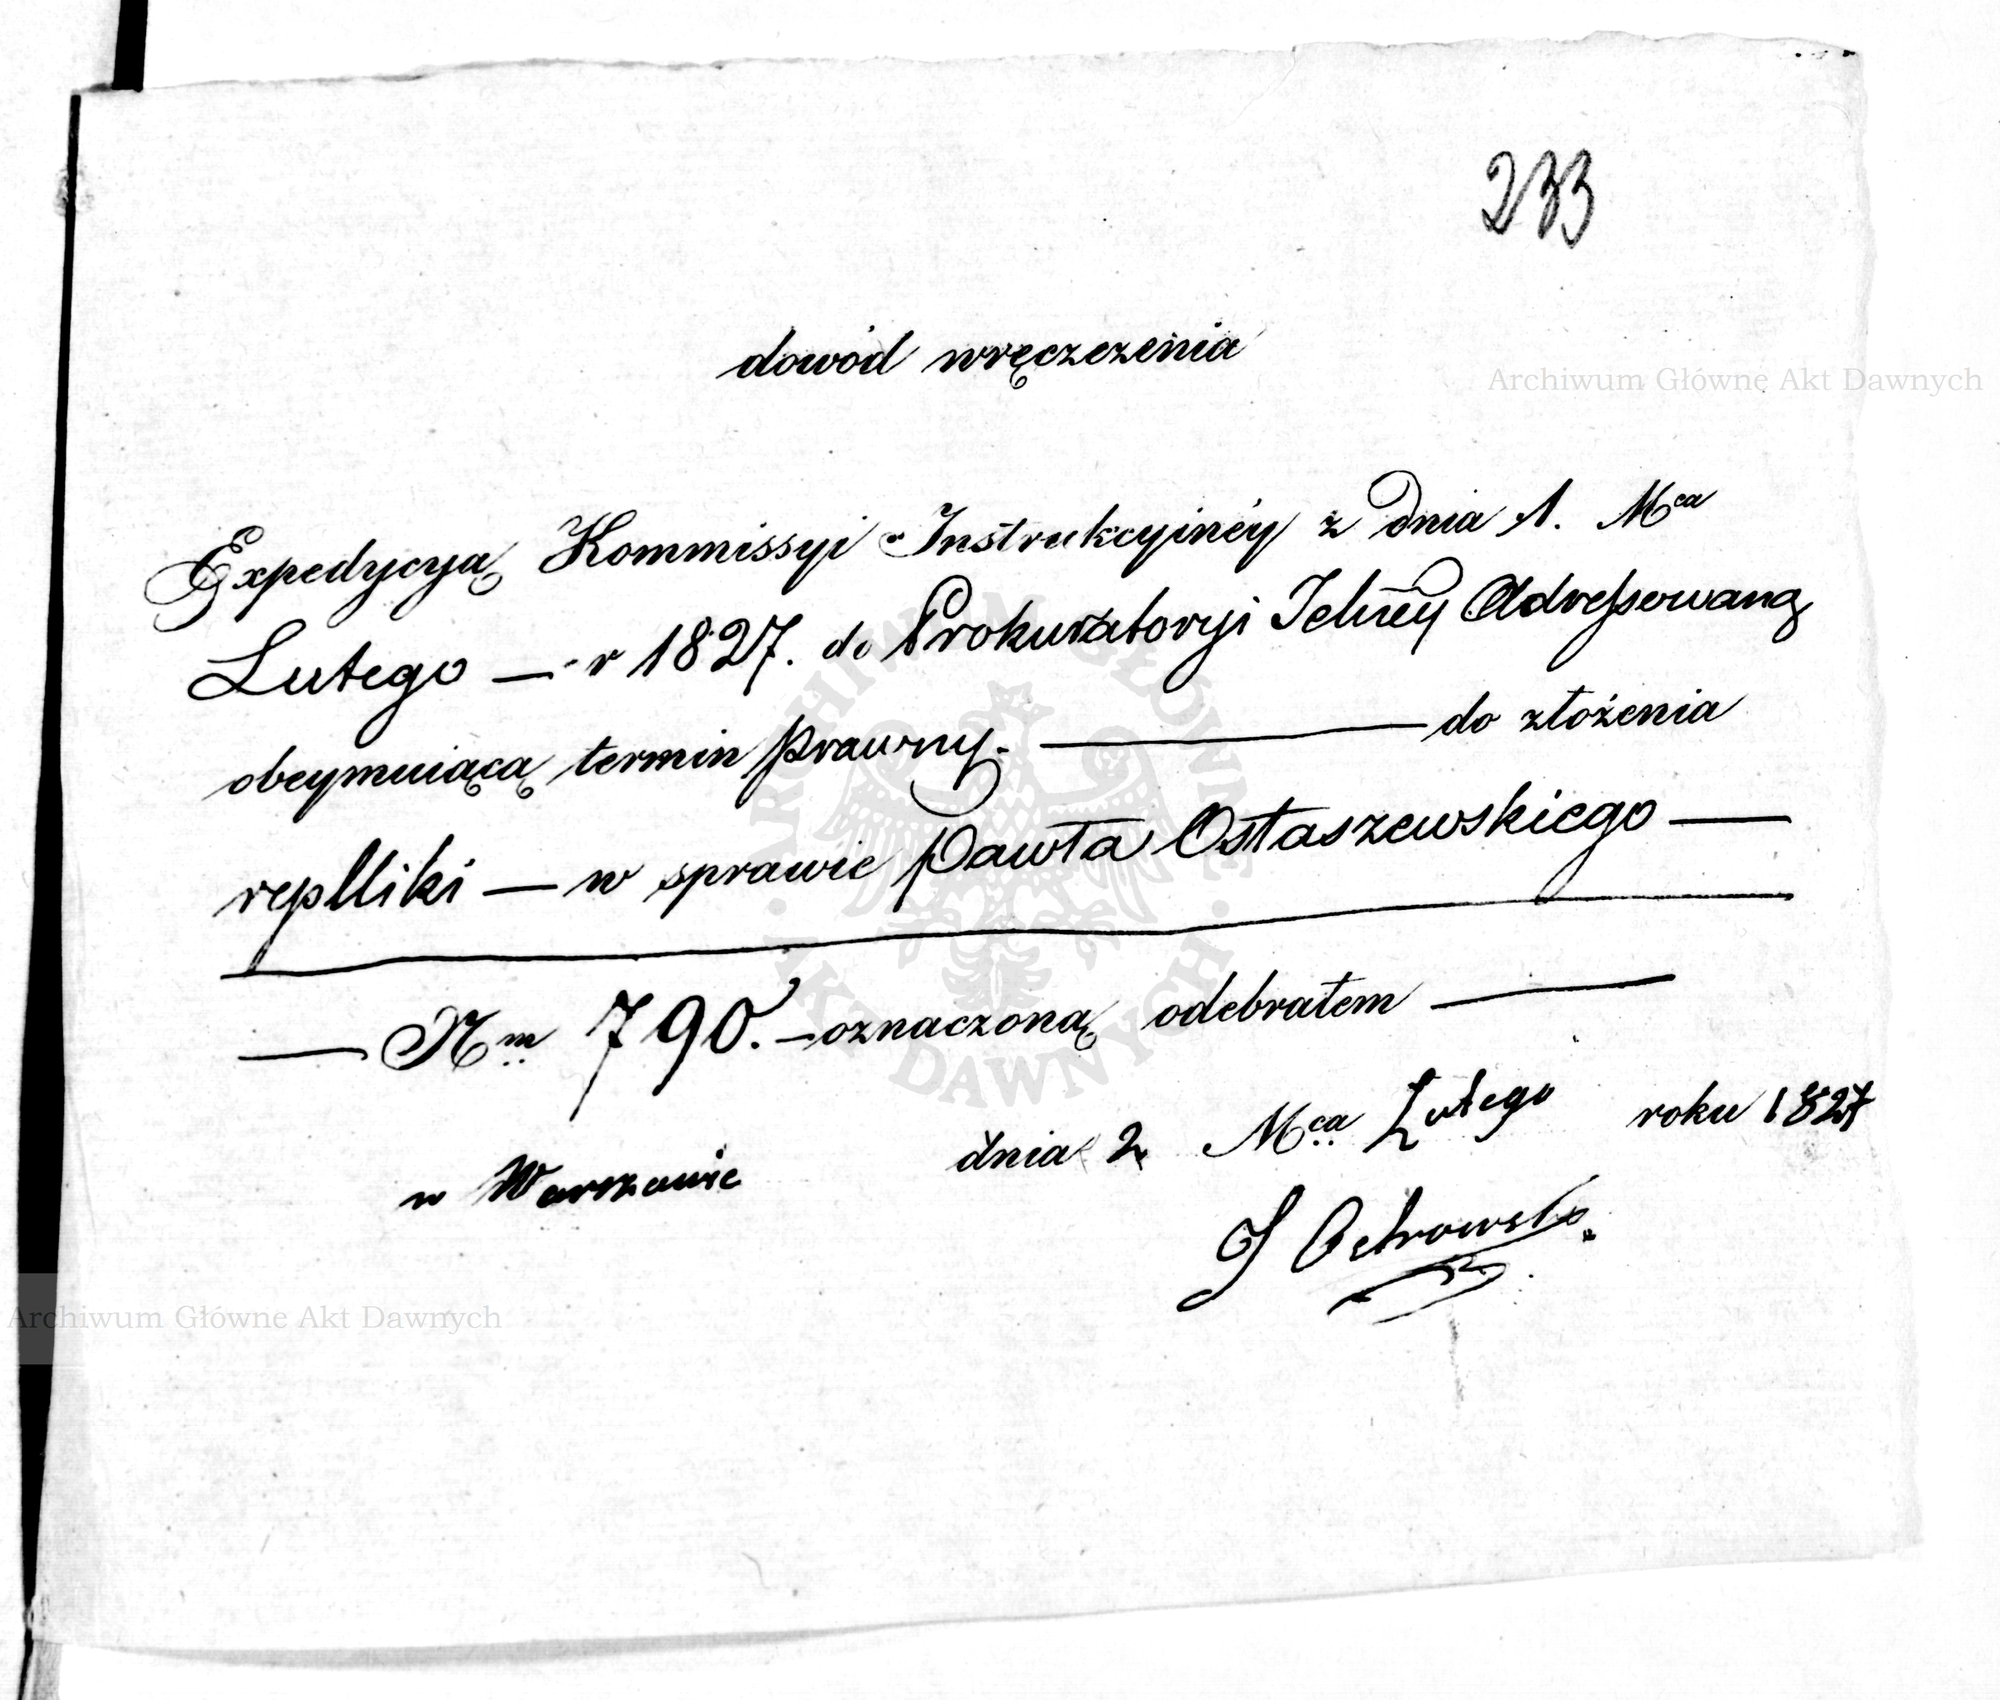 233
dowód wręczezenia
Archiwum Główne Akt Dawnych
Expedycyą Kommissyi Instrukcyinéy z Dnia 1. Mca
Lutego — r 1827. do Prokuratoryi Jelney Adressowaną
obeymuiącą termin prawny. — do złożenia
replliki — w sprawie Pawła Ostaszewskiego —
— Nm 790. — oznaczoną odebrałem —
w Warszawie dnia 2 Mca Lutego roku 1827
J Ostrowski
Archiwum Główne Akt Dawnych
ARCHIWUM GŁÓWNE AKT DAWNYCH